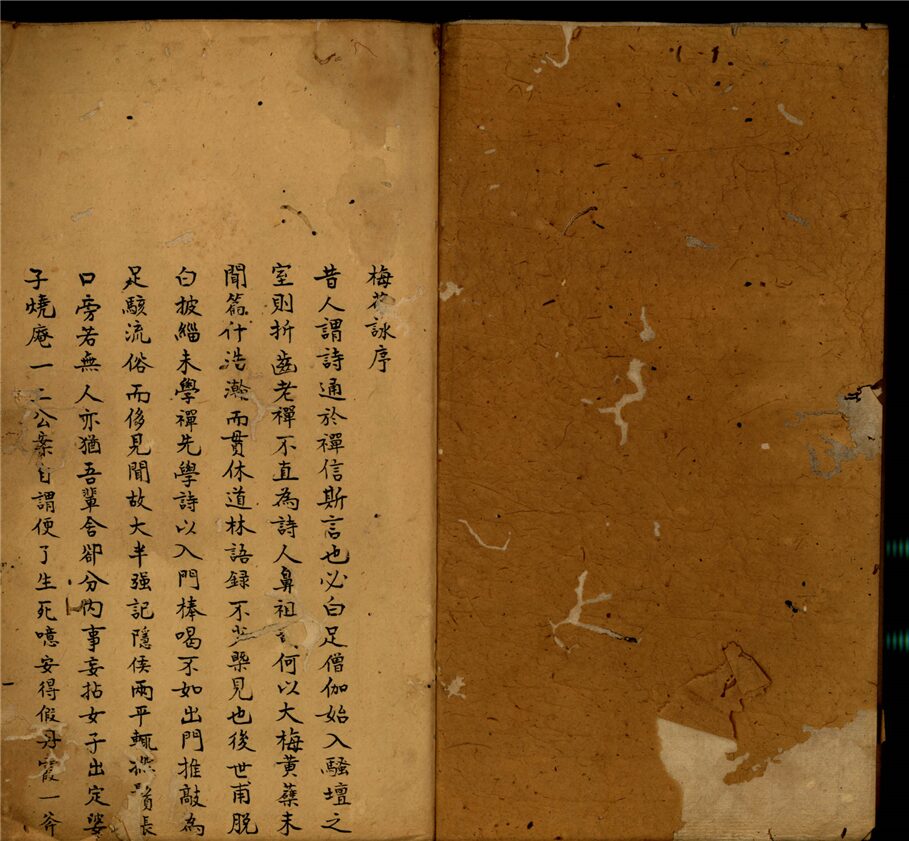 梅花詠序
昔人謂詩通於禪信斯言也必白足僧伽始入騷壇之
室則折齒老禪不直為詩人鼻祖何以大梅黃蘗未
聞篇什浩瀚而貫休道林語録不少槩見也後世甫脫
白披緇未學禪先學詩以入門棒喝不如出門推敲為
足駭流俗而侈見聞故大半强記隱侯兩平輒長
口旁若無人亦猶吾輩舍卻分內事妄拈女子出定婆
子燒庵一二公案自謂便了生死噫安得假丹霞一斧